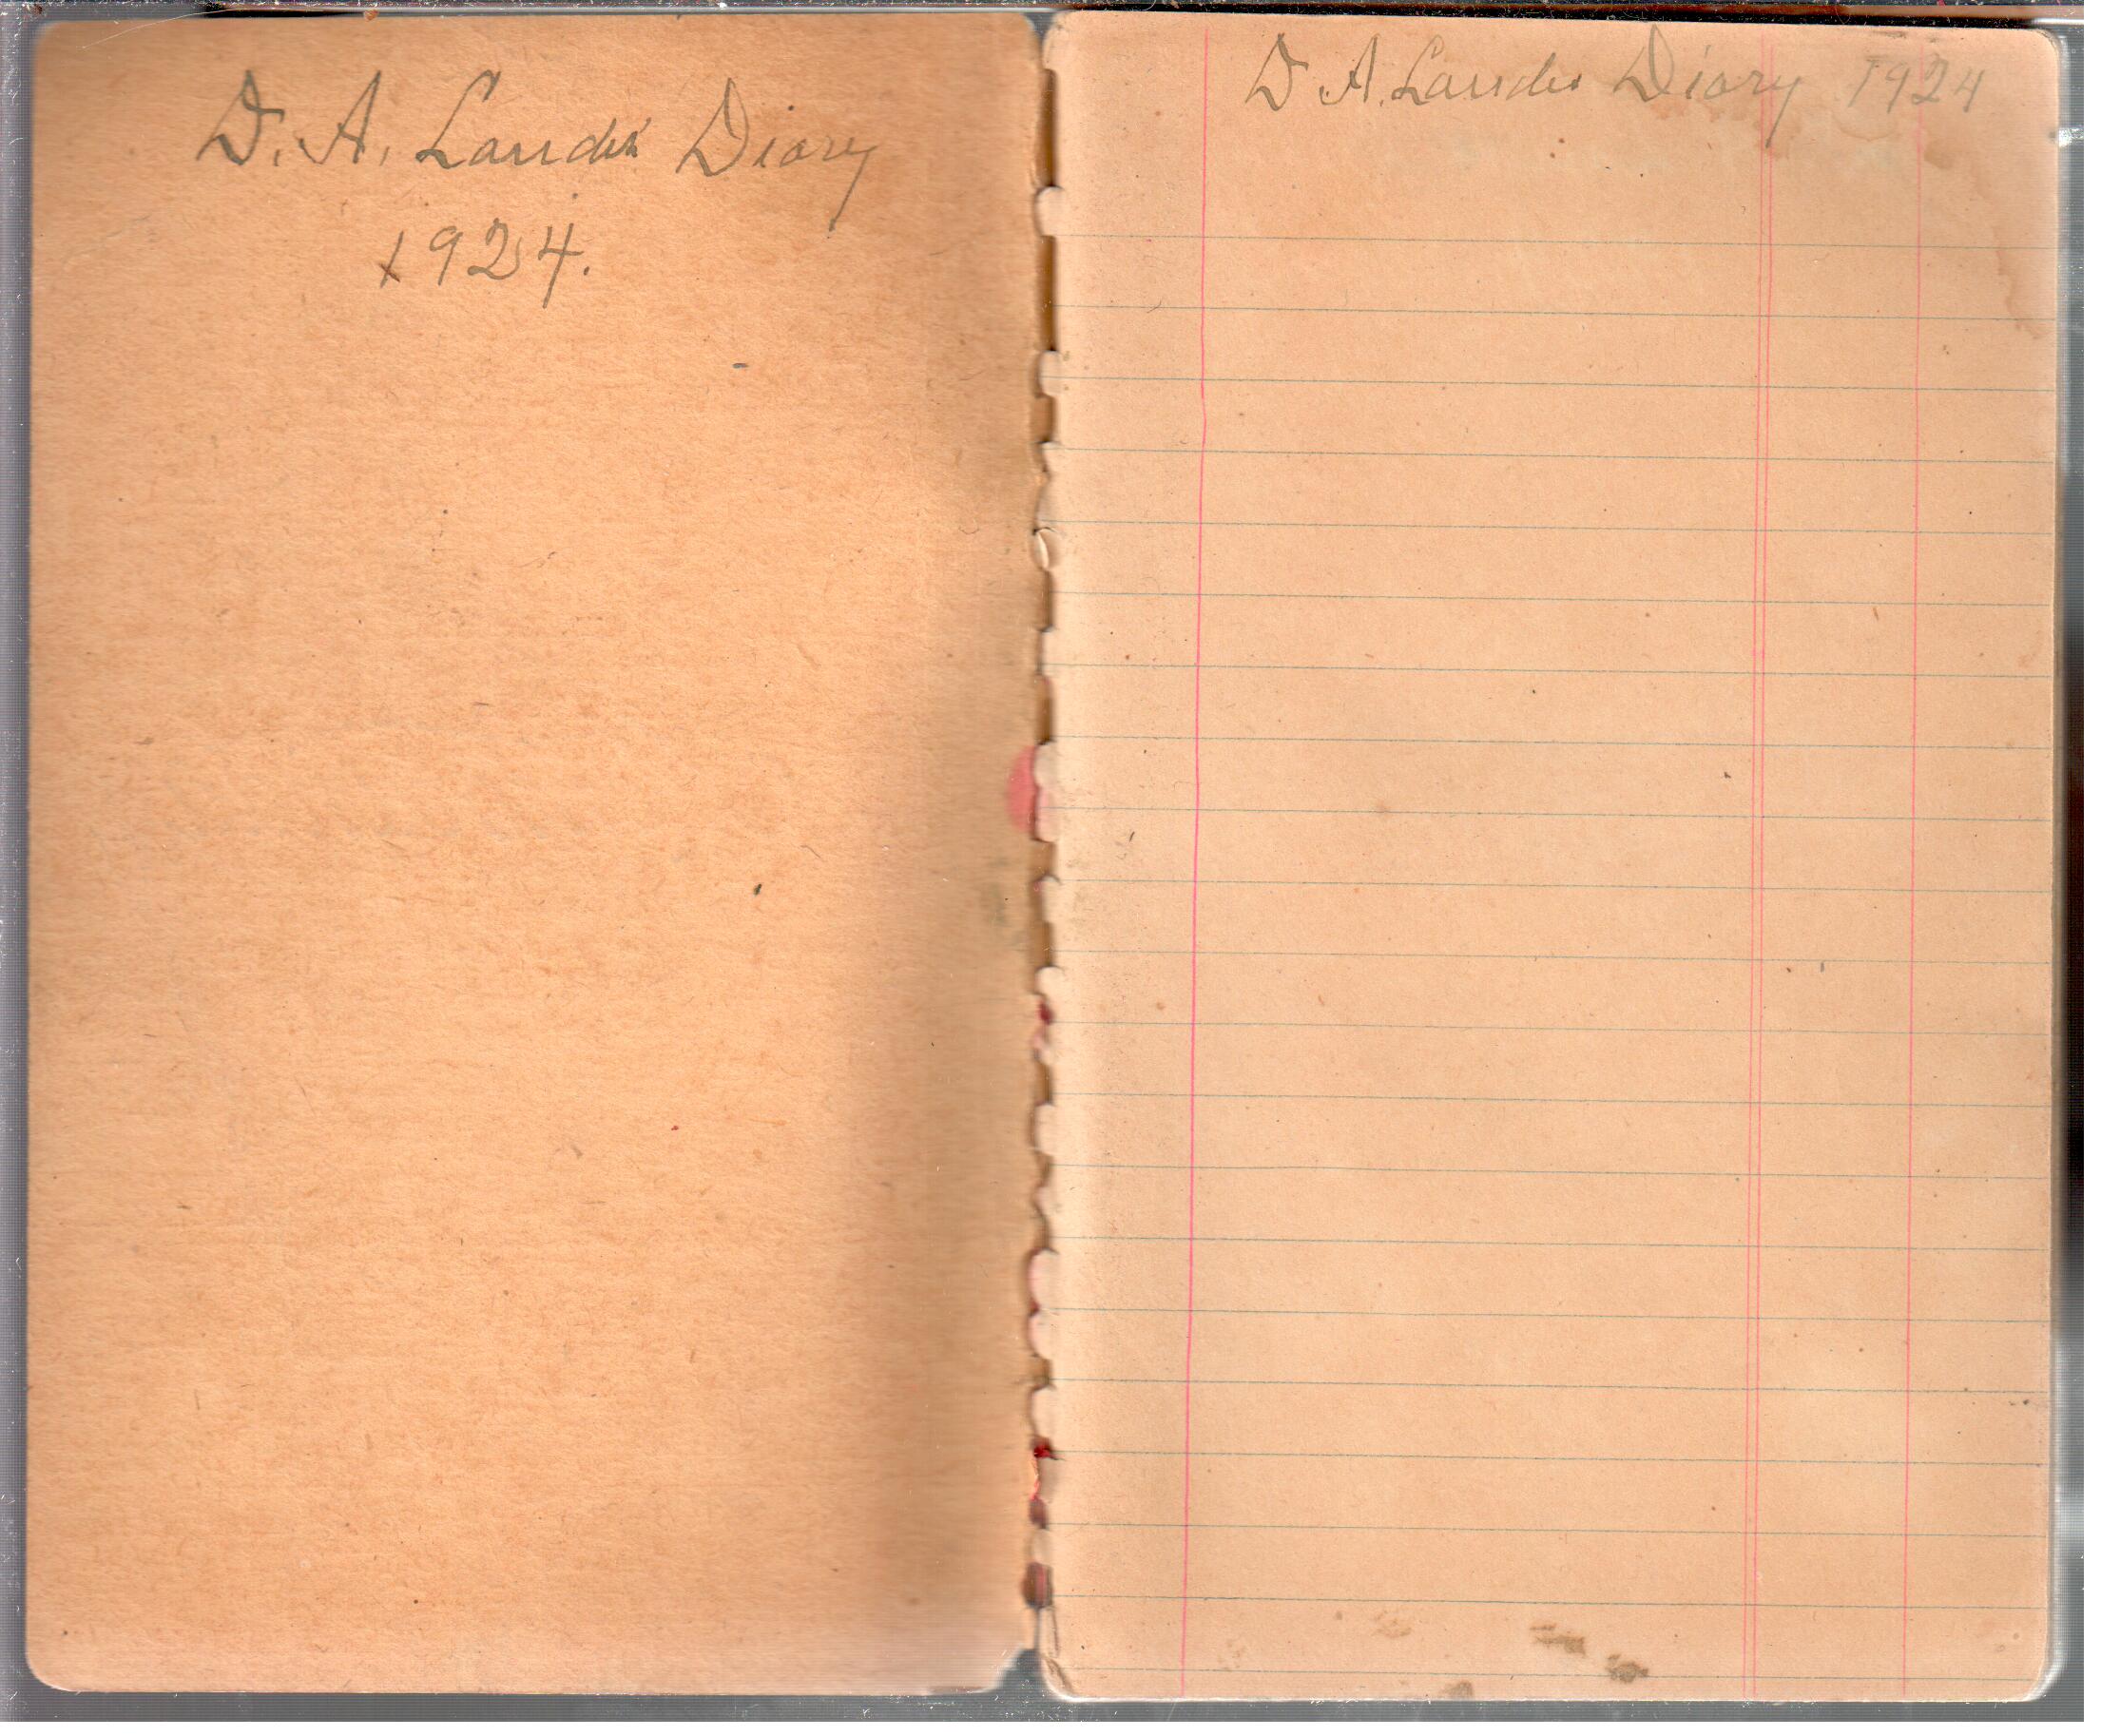 D. A. Landis Diary
1924.
D. A. Landis Diary 1924